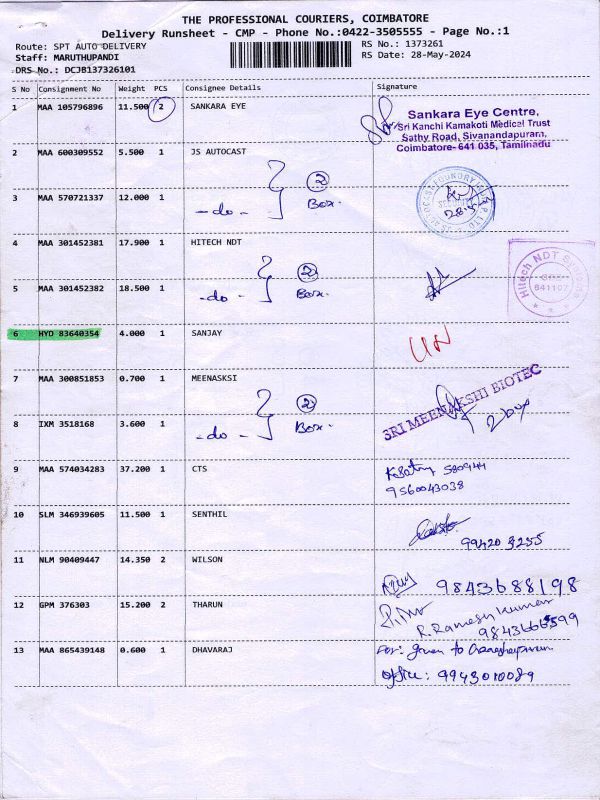 THE PROFESSIONAL COURIERS, COIMBATORE
Delivery Runsheet - CMP - Phone No.:0422-3505555 - Page No.:1
Route: SPT AUTO DELIVERY
RS No.: 1373261
Staff: MARUTHUPANDI
RS Date: 28-May-2024
DRS No.: DCJB137326101
S No Consignment No Weight PCS Consignee Details Signature
1 MAA 105796896 11.500 2 SANKARA EYE
Sankara Eye Centre,
Sri Kanchi Kamakoti Medical Trust
Sathy Road, Sivanandapuram,
Coimbatore- 641 035, Tamilnadu
2 MAA 600309552 5.500 1 JS AUTOCAST
2
3 MAA 570721337 12.000 1
-do- Box.
4 MAA 301452381 17.900 1 HITECH NDT
2
Hitech NDT
641107
5 MAA 301452382 18.500 1
-do- Box.
6 HYD 83640354 4.000 1 SANJAY
7 MAA 300851853 0.700 1 MEENASKSI
2
SRI MEENAKSHI BIOTEC
8 IXM 3518168 3.600 1
-do- Box.
2 box
9 MAA 574034283 37.200 1 CTS
580944
9560043038
10 SLM 346939605 11.500 1 SENTHIL
99420 3255
11 NLM 90409447 14.350 2 WILSON
9843688198
12 GPM 376303 15.200 2 THARUN
R. Ramesh Kumar
13 MAA 865439148 0.600 1 DHAVARAJ
For: given to
Office: 9943010089